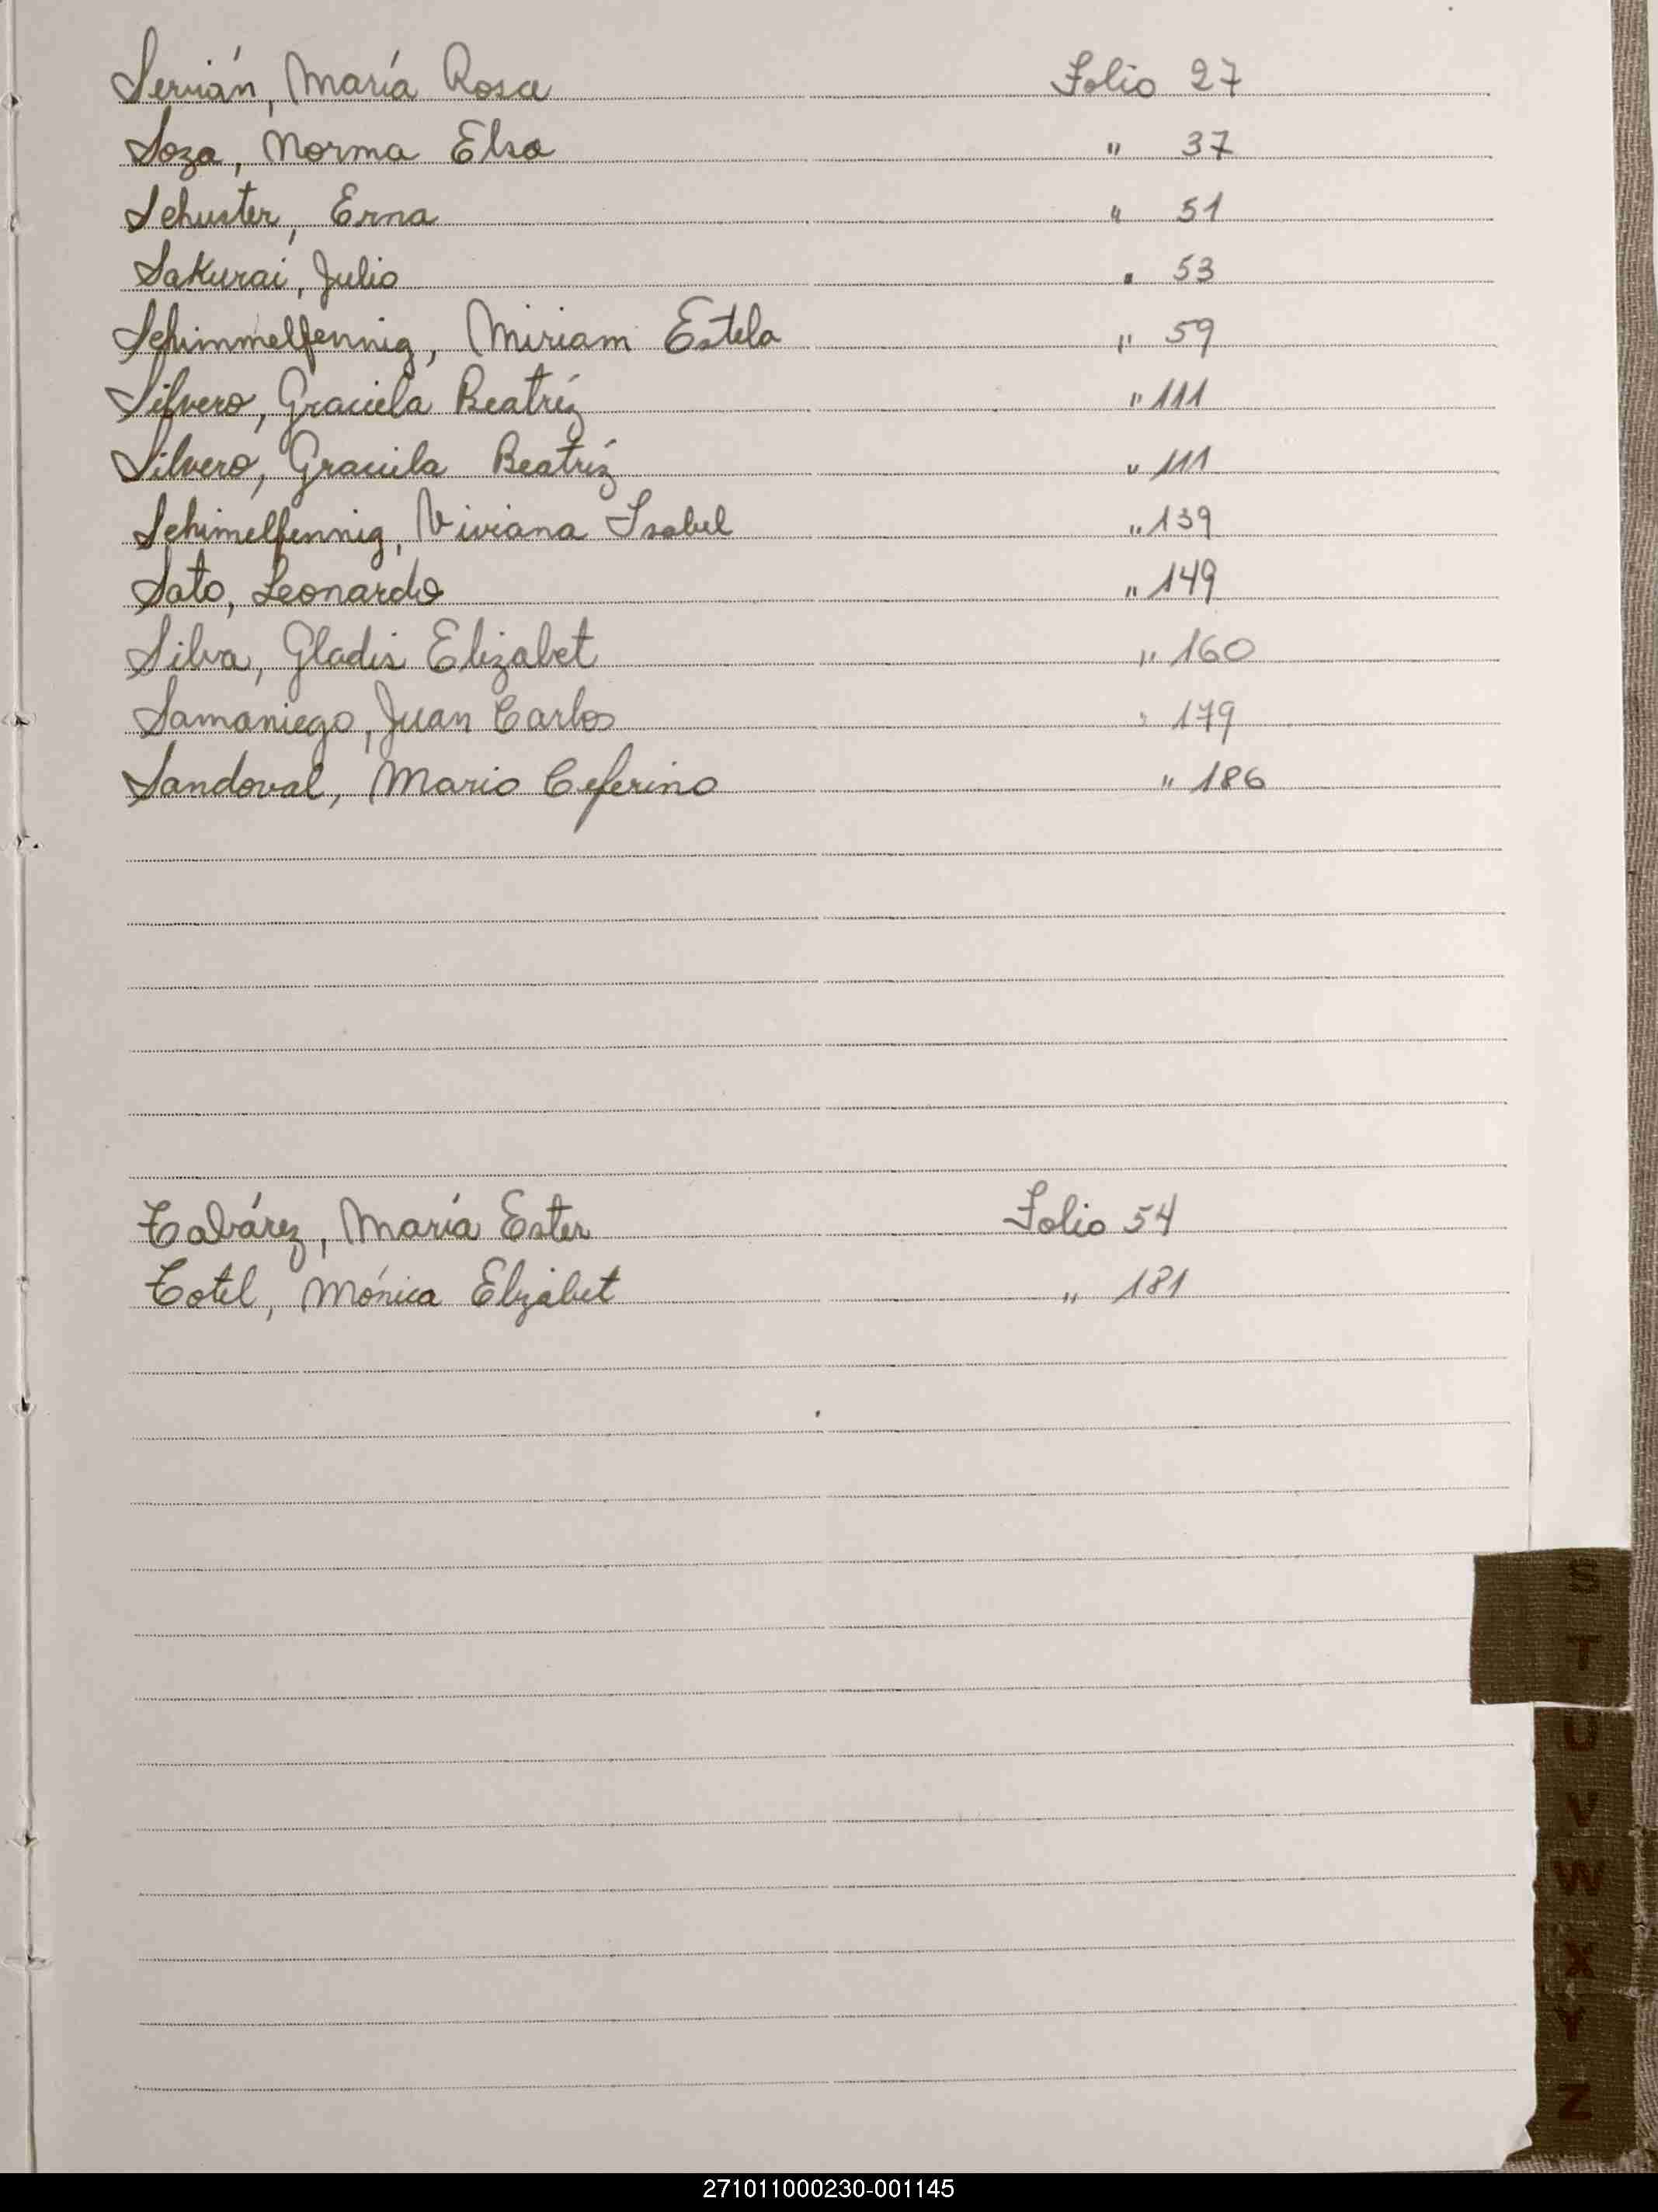 Servián, María Rosa Folio 27
Soza, Norma Elsa " 37
Schuster, Erna " 51
Sakurai, Julio " 53
Schimmelfennig, Miriam Estela " 59
Silvero, Graciela Beatríz " 111
Silvero, Graciela Beatríz " 111
Schimelfennig, Viviana Isabel " 139
Sato, Leonardo " 149
Silva, Gladis Elizabet " 160
Samaniego, Juan Carlos " 179
Sandoval, Mario Ceferino " 186
Tabárez, María Ester Folio 54
Totel, Mónica Elizabet " 181
S
T
U
V
W
X
Y
Z
271011000230-001145